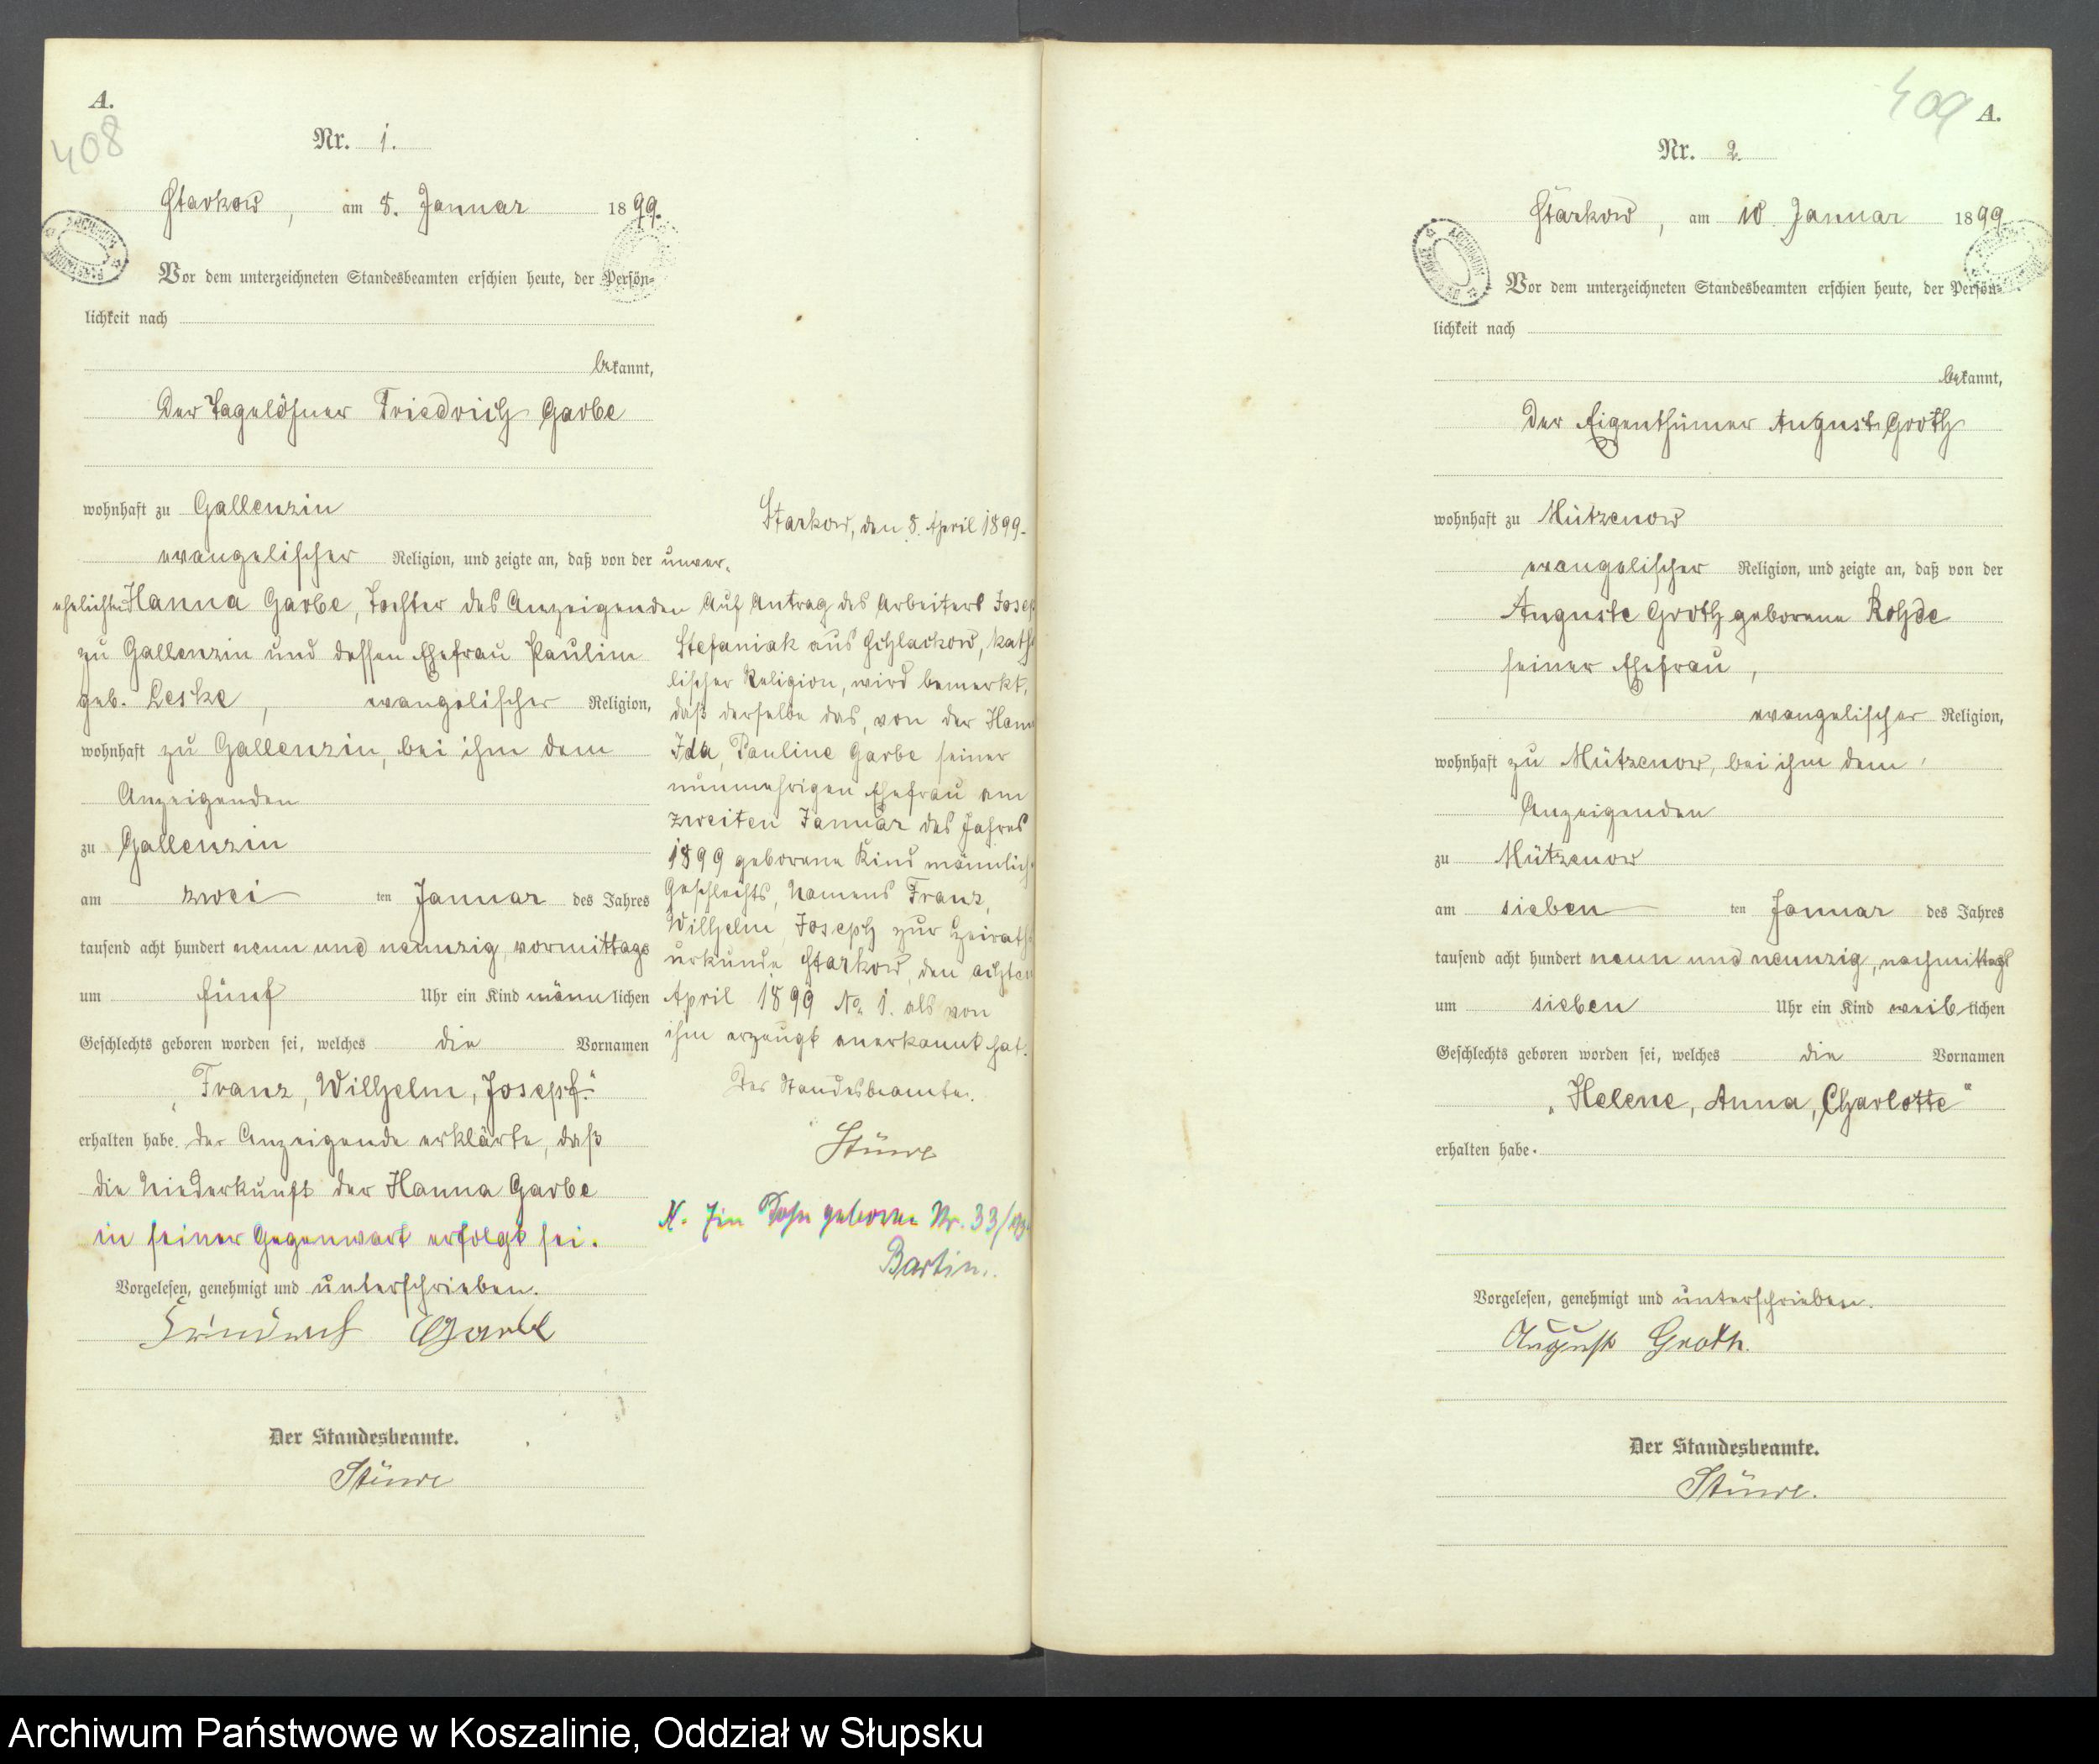 A.
408
Nr. 1.
Starkow, am 8. Januar 1899.
Vor dem unterzeichneten Standesbeamten erschien heute, der Persön-
lichkeit nach
bekannt,
Der Tagelöhner Friedrich Garbe
wohnhaft zu Gallenzin
evangelischer Religion, und zeigte an, daß von der unver-
ehelichten Hanna Garbe, Tochter des Anzeigenden
zu Gallenzin und dessen Ehefrau Pauline
geb. Leske, evangelischer Religion,
wohnhaft zu Gallenzin, bei ihm dem
Anzeigenden
zu Gallenzin
am zwei ten Januar des Jahres
tausend acht hundert neun und neunzig, vormittags
um fünf Uhr ein Kind männlichen
Geschlechts geboren worden sei, welches die Vornamen
„Franz, Wilhelm, Joseph“
erhalten habe. Der Anzeigende erklärte, daß
die Niederkunft der Hanna Garbe
in seiner Gegenwart erfolgt sei.
Vorgelesen, genehmigt und unterschrieben.
Friedrich Garbe
Der Standesbeamte.
Stüwe
Starkow, den 8. April 1899.
Auf Antrag des Arbeiters Josep
Stefaniak aus Schlackow, katho
lischer Religion, wird bemerkt,
daß derselbe das, von der Hann
Ida, Pauline Garbe seiner
nunmehrigen Ehefrau am
zweiten Januar des Jahres
1899 geborene Kind männlich
Geschlechts, Namens Franz,
Wilhelm, Joseph zur Heiraths
urkunde Starkow, den achten
April 1899 No 1. als von
ihm erzeugt anerkannt hat.
Der Standesbeamte.
Stüwe
Ein Sohn geboren Nr. 33/
Bartin.
409 A.
Nr. 2
Starkow, am 10. Januar 1899
Vor dem unterzeichneten Standesbeamten erschien heute, der Persön-
lichkeit nach
bekannt,
Der Eigenthümer August Groth
wohnhaft zu Mützenow
evangelischer Religion, und zeigte an, daß von der
Auguste Groth geborene Rohde
seiner Ehefrau,
evangelischer Religion,
wohnhaft zu Mützenow, bei ihm dem
Anzeigenden
zu Mützenow
am sieben ten Januar des Jahres
tausend acht hundert neun und neunzig, nachmittags
um sieben Uhr ein Kind weiblichen
Geschlechts geboren worden sei, welches die Vornamen
„Helene, Anna, Charlotte“
erhalten habe.
Vorgelesen, genehmigt und unterschrieben.
August Groth.
Der Standesbeamte.
Stüwe.
Archiwum Państwowe w Koszalinie, Oddział w Słupsku